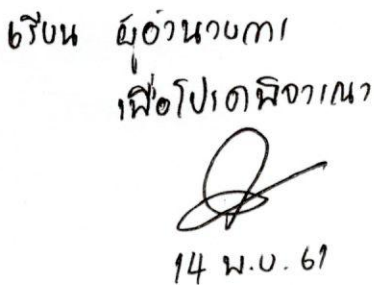 เรียน ผู้อำนวยการ
เพื่อโปรดพิจารณา
14 พ.ย. 61